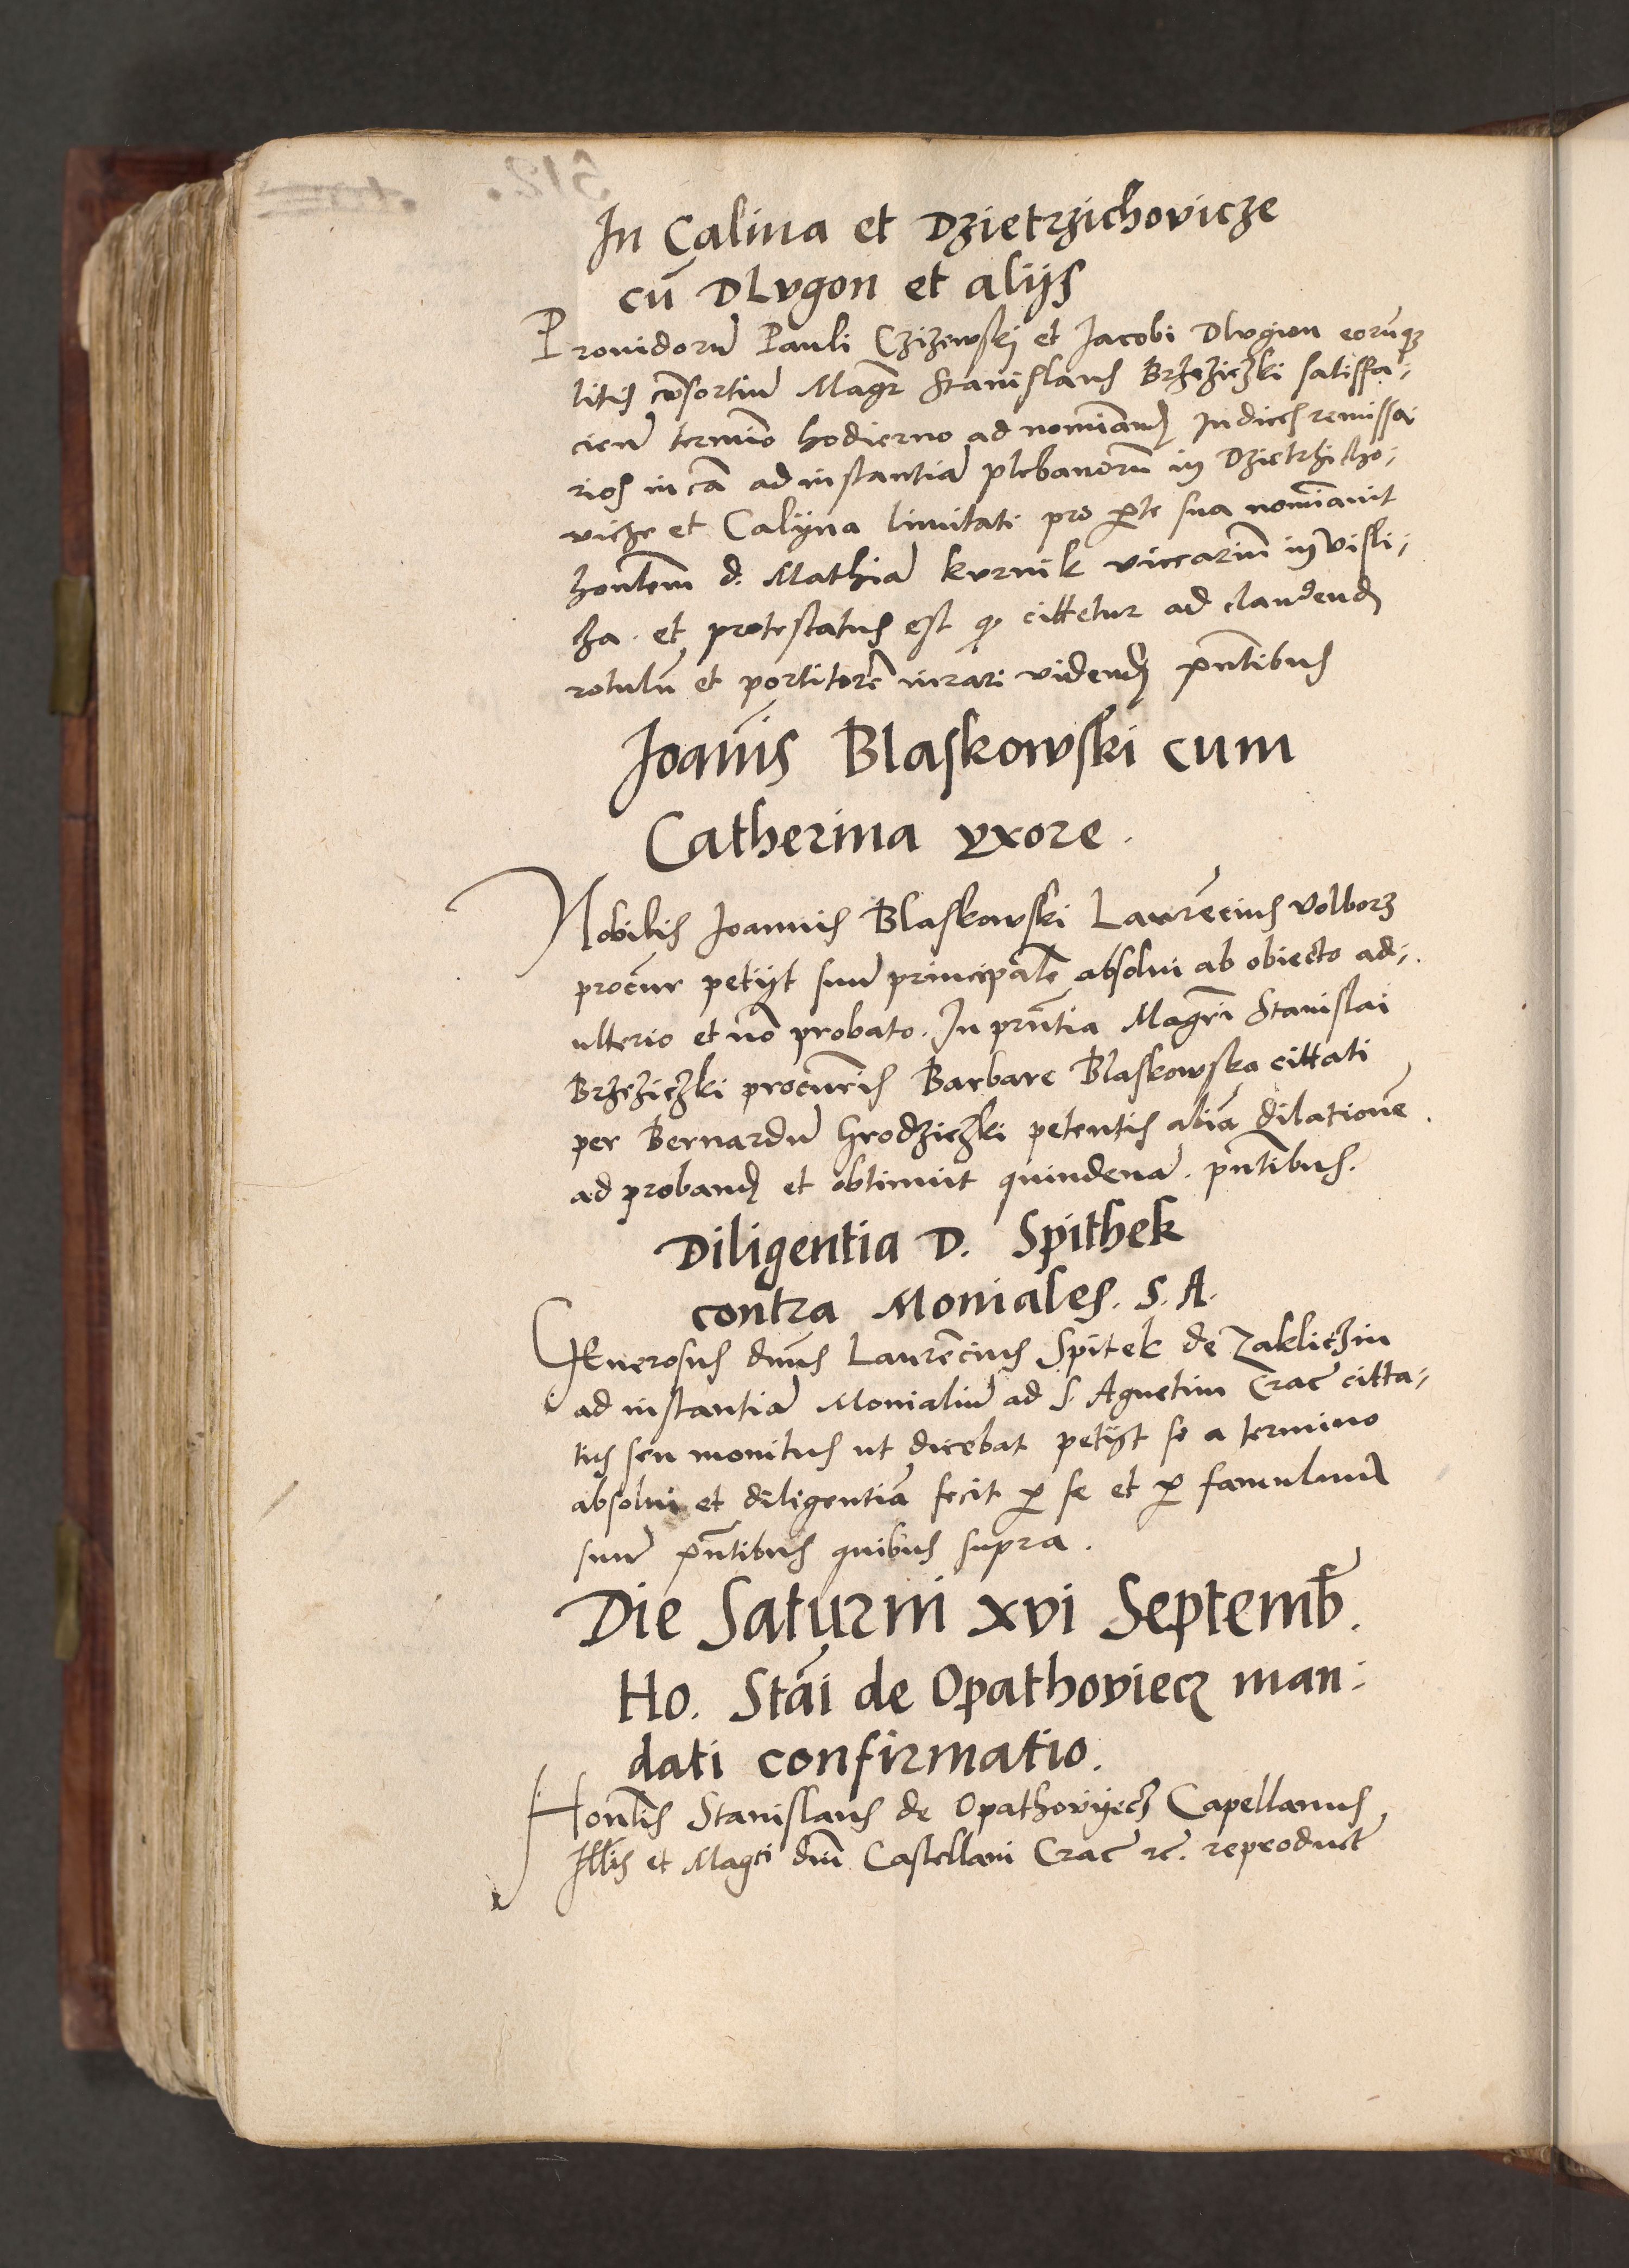 In Calina et Dzietrzichovicze
cū Dlvgon et aliis
Prouidorū Pauli Czizewskj et Jacobi Dlvgion eorūqȝ
litis cōsortiū Magr̄ Stanislaus Brzeziczki satisfa⸗
cien̄ termīo hodierno ad nomīand Judices remissa⸗
rios in cā ad instantiā plebanorū in Dzietrzicho⸗
vicze et Calijna limitati pro p̄te sua nomīauit
honlem̄ d. Mathiā kvrnik viccariū in Visli⸗
cza. et protestatus est qȝ cittetur ad claudend
rotulū et portitorē iurari videnď pn̄tibus
Joan̄is Blaskowski cum
Catherina vxore.
Nobilis Joannis Blaskowski Laurēcius Volborz
procūr petijt suū principalē absolui ab obiecto ad⸗
ulterio et nō probato. In pn̄tia Magrī Stanislai
Brzeziczki procūris Barbare Blaskowska cittati
per Bernardū Grodziczki petentis aliā dilationē
ad proband et obtinuit quindenā. pn̄tibus.
Diligentia D. Spithek
contra Moniales. S. A.
Generosus dn̄us Laurēcius Spitek de Zakliczin
ad instantiā Monialiū ad S. Agnetim Crac̄ citta⸗
tus seu monitus ut dicebat petijt se a termino
absolui et diligentiā fecit p̄ se et p̄ famulum
suū pn̄tibus quibus supra.
Die Saturni xvi Septemb̄.
Ho. Stāi de Opathoviecz man⸗
dati confirmatio.
Honl̄is Stanislaus de Opathovijecz Capellanus
Ill̄is et Magci dn̄i Castellani Crac̄ ⁊c̄. reproduct̄